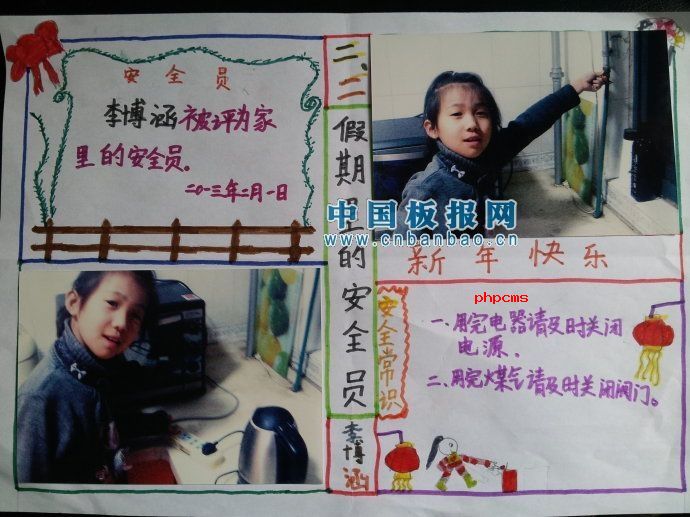 安全员
李博涵被评为家
里的安全员。
二〇一三年二月一日
二、二
假期里的安全员
李博涵
新年快乐
安全常识
phpcms
一、用完电器请及时关闭
电源、
二、用完火煤气请及时关闭阀门。
中国板报网
www.cnbanbao.cn